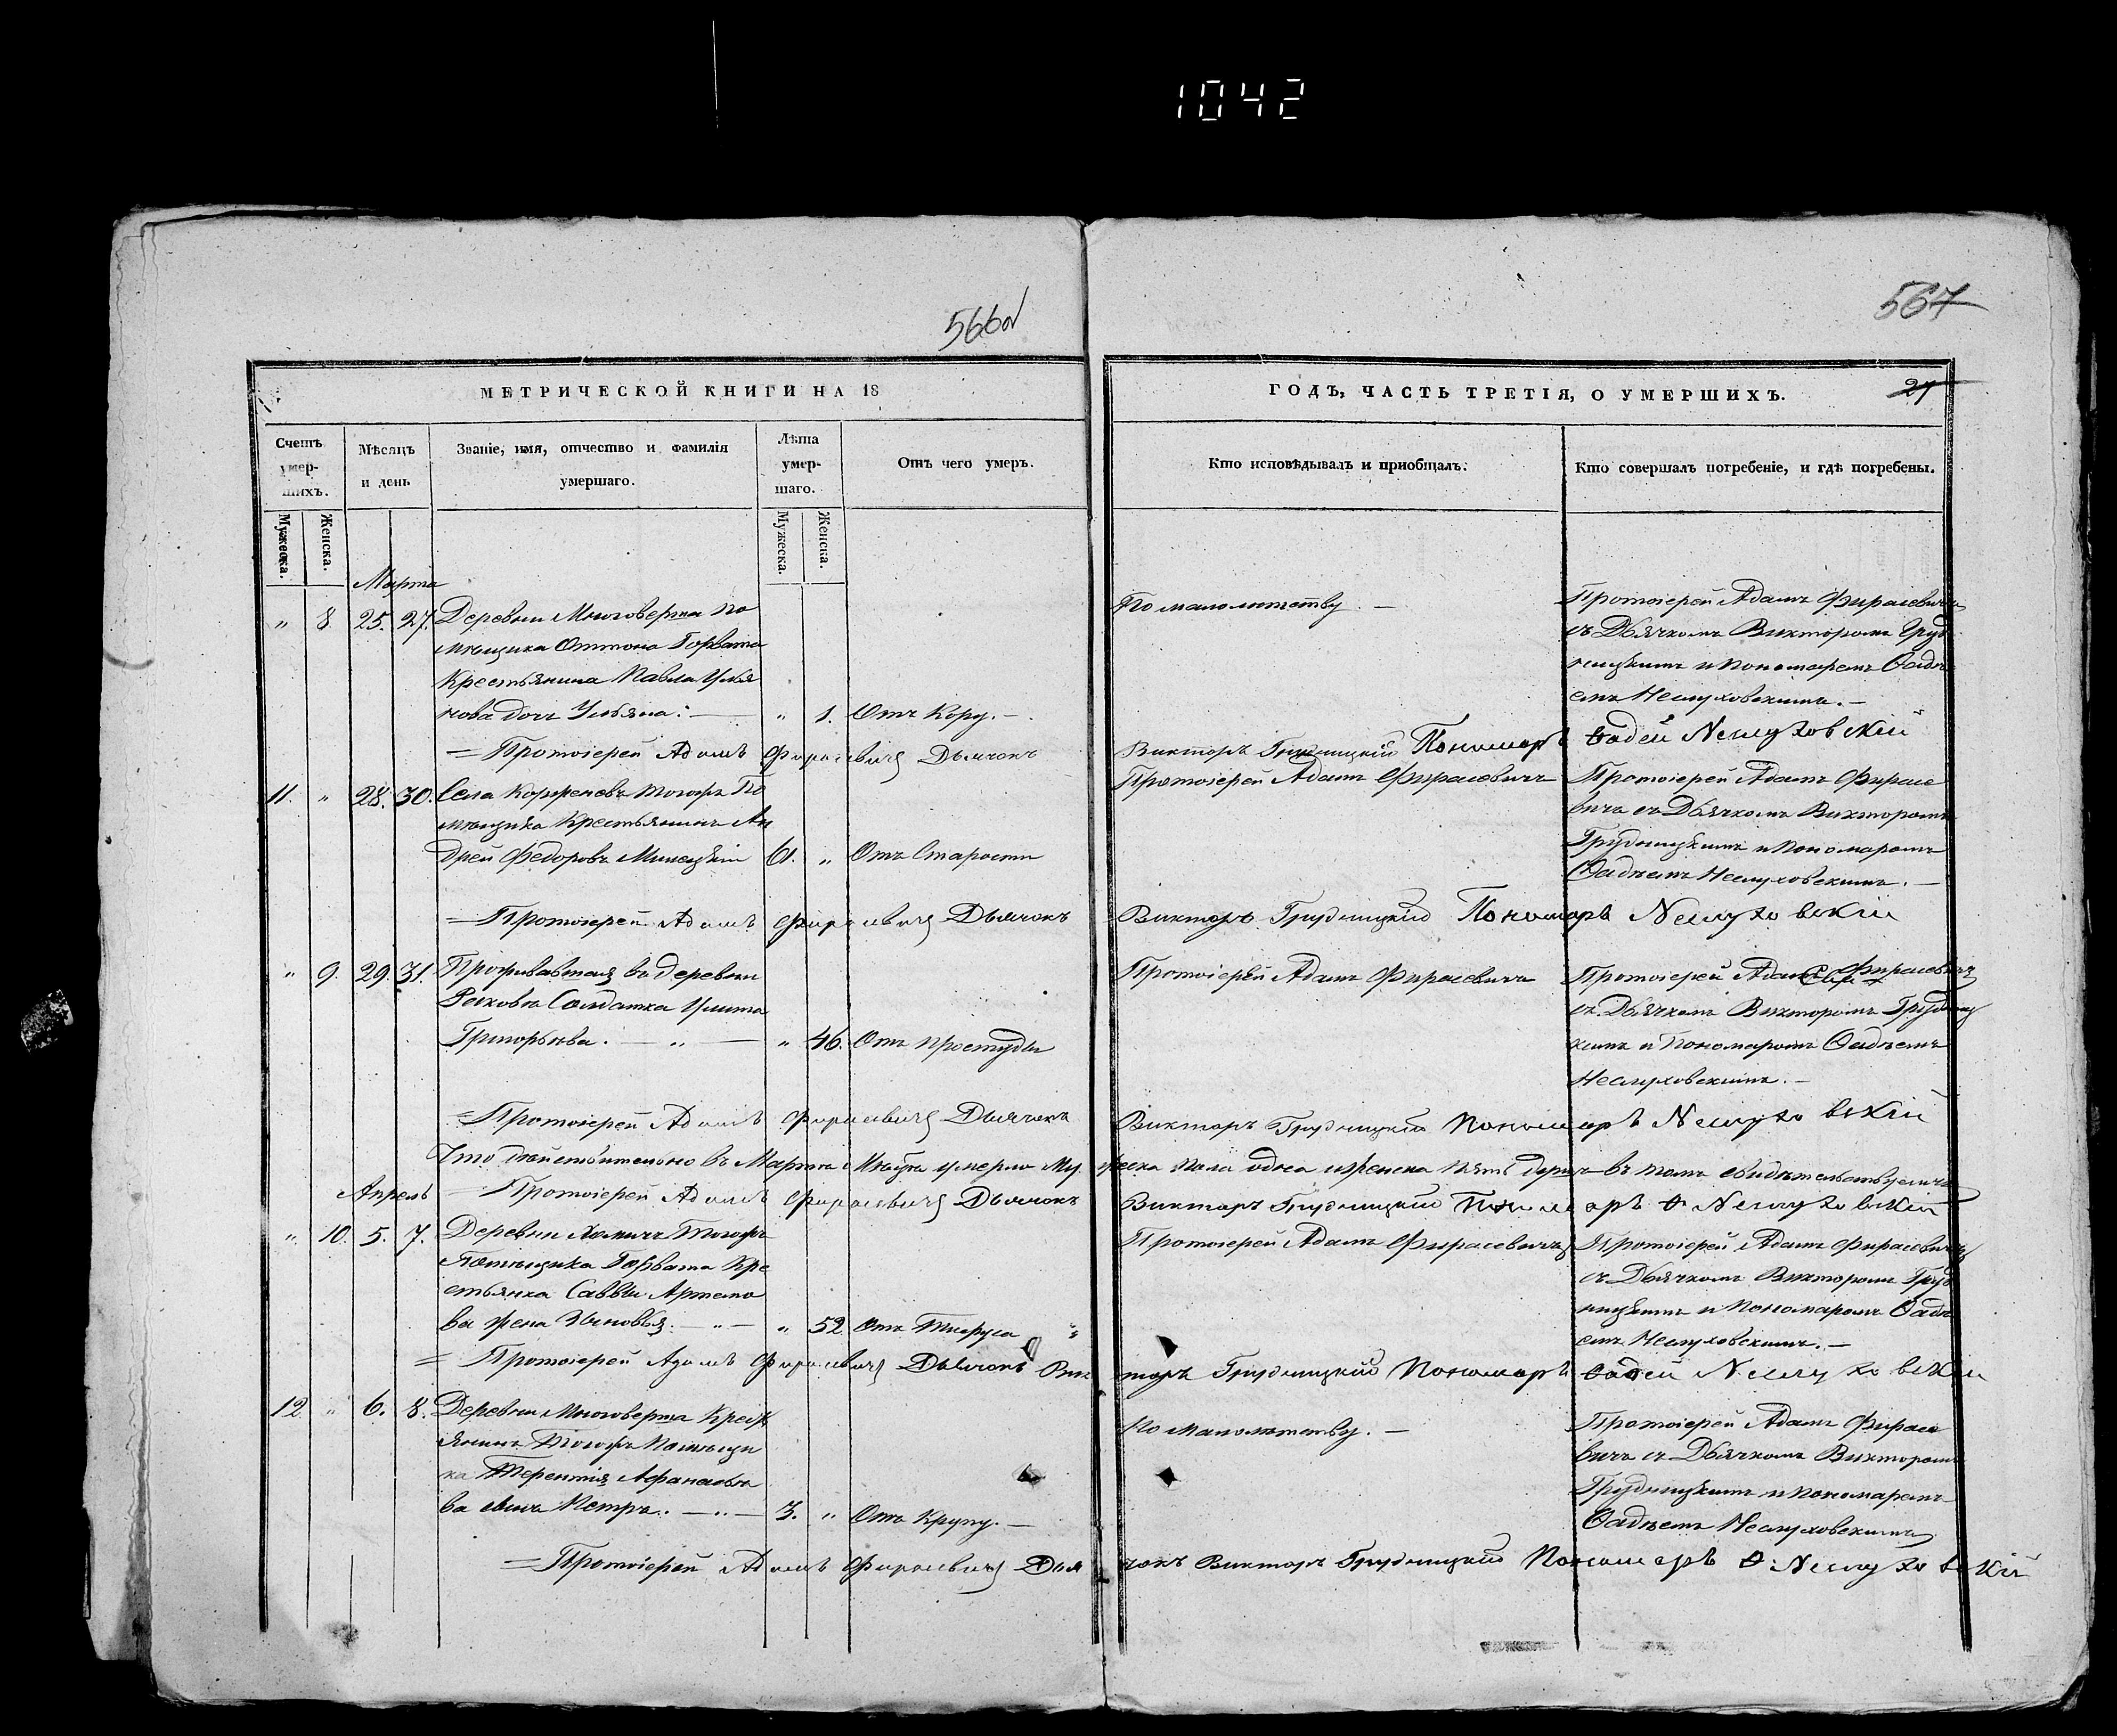 1042
566об
567
МЕТРИЧЕСКОЙ КНИГИ НА 18
ГОДЪ, ЧАСТЬ ТРЕТІЯ, О УМЕРШИХЪ.
27
Счетъ умер-шихъ.
Мѣсяцъ и день
Званіе, имя, отчество и фамилія умершаго.
Лѣта умер-шаго.
Отъ чего умеръ.
Кто исповѣдывалъ и пріобщалъ.
Кто совершалъ погребеніе, и гдѣ погребены.
Мужеска.
Женска.
Мужеска.
Женска.
Марта
" 8 25. 27. Деревни Многоверша по
мѣщика Оттона Горвата
Крестьянина Павла Улья
нова дочь Ульяна: — " 1. Отъ Кору. —
По малолѣтству. —
Протоіерей Адамъ Фирасевичъ
съ Дьячкомъ Викторомъ Груд
ницкимъ и Пономаремъ Фадѣ
емъ Неслуховскимъ. —
= Протоіерей Адамъ Фирасевичъ Дьячокъ Викторъ Грудницкій Пономарь Фадей Неслуховскій
11. " 28. 30. Села того жъ По
мѣщика Крестьянинъ Ан
дрей Федоровъ 61. " Отъ Старости
Протоіерей Адамъ Фирасевичъ
Протоіерей Адамъ Фирасе
вичъ съ Дьячкомъ Викторомъ
Грудницкимъ и Пономаромъ
Фадѣемъ Неслуховскимъ. —
= Протоіерей Адамъ Фирасевичъ Дьячокъ Викторъ Грудницкій Пономарь Неслуховскій
" 9. 29. 31. Проживавшая въ деревни
Солдатка Улита
Григорьева. — " — " 46. Отъ простуды
Протоіерей Адамъ Фирасевичъ
Протоіерей Адамъ Фирасевичъ
съ Дьячкомъ Викторомъ Грудниц
кимъ и Пономаромъ Фадѣемъ
Неслуховскимъ. —
= Протоіерей Адамъ Фирасевичъ Дьячокъ Викторъ Грудницкій Пономарь Неслуховскій
Что дѣйствительно въ Марта умерло Му жеска пола одна женска пять въ томъ свидѣтельствуемъ
Апрель — Протоіерей Адамъ Фирасевичъ Дьячокъ Викторъ Грудницкій Пономарь Ѳ Неслуховскій
" 10. 5. 7. Деревни тогожъ
Помѣщика Горвата Кре
стьянка Саввы Артемо
ва жена Зиновья. — " — " 52. Отъ
Протоіерей Адамъ Фирасевичъ
Протоіерей Адамъ Фирасевичъ
съ Дьячкомъ Викторомъ Груд
ницкимъ и Пономаромъ Фадѣ
емъ Неслуховскимъ. —
= Протоіерей Адамъ Фирасевичъ Дьячокъ Викторъ Грудницкій Пономарь Фадей Неслуховскій
12 " 6. 8. Деревни Многоверша Крест
янинъ Тогожъ Помѣщи
ка Терентія Афанасье
ва сынъ Петръ. — " — 3. " Отъ Крупу. —
По малолѣтству. —
Протоіерей Адамъ Фирасе
вичъ съ Дьячкомъ Викторомъ
Грудницкимъ и Пономаремъ
Фадѣемъ Неслуховскимъ
= Протоіерей Адамъ Фирасевичъ Дьячокъ Викторъ Грудницкій Пономарь Ѳ: Неслуховскій